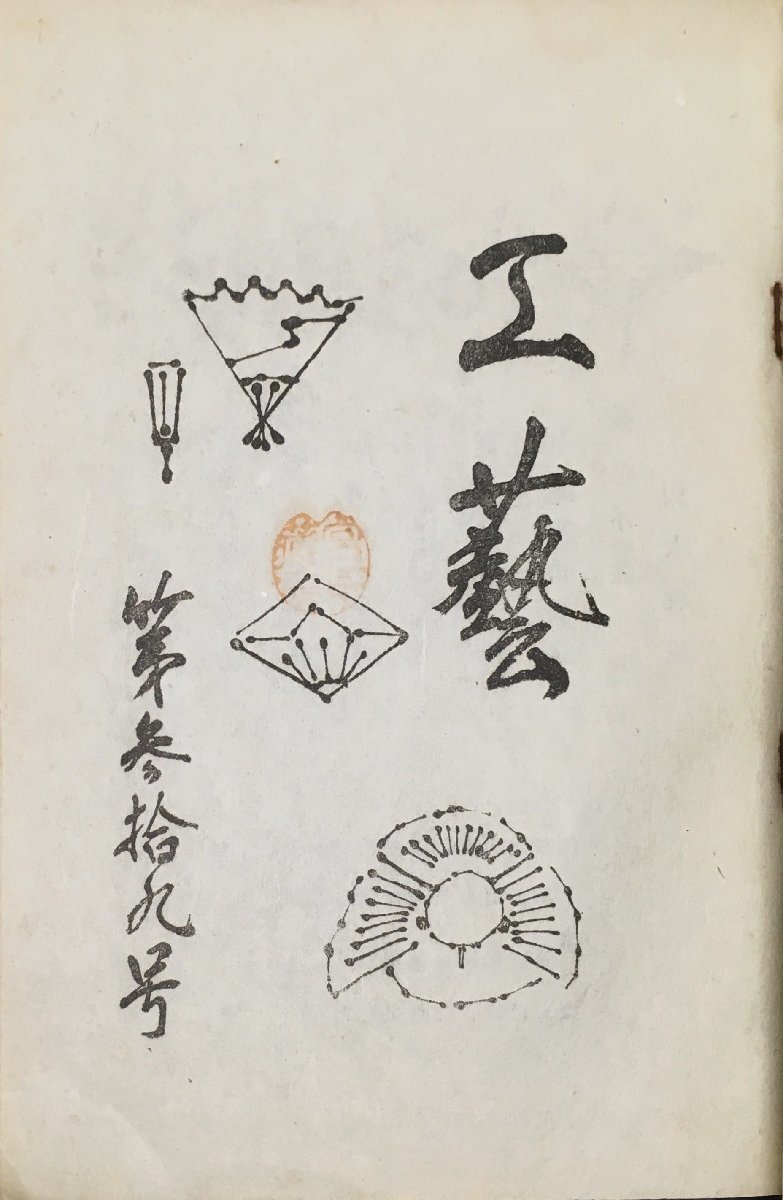 工藝
第参拾九号